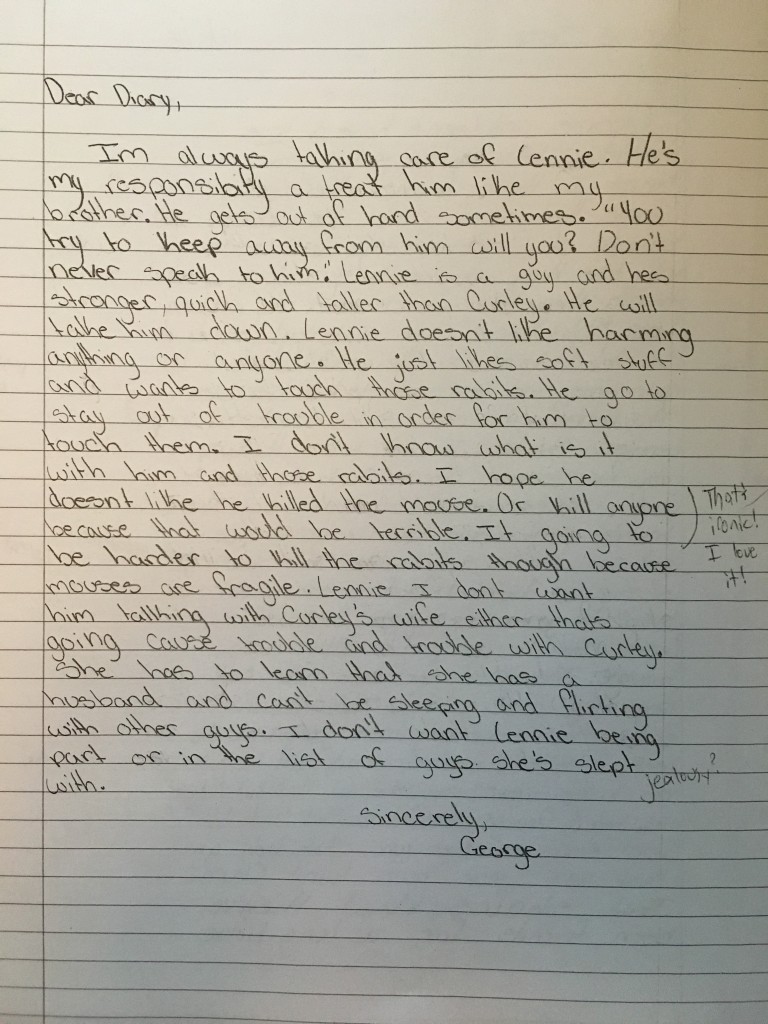 Dear Diary,
Im always talking care of Lennie. He's
my responsibilty a treat him like my
brother. He gets out of hand sometimes. "You
try to keep away from him will you? Don't
never speak to him." Lennie is a guy and hes
stronger, quick and taller than Curley. He will
take him down. Lennie doesn't like harming
anything or anyone. He just likes soft stuff
and wants to touch those rabits. He go to
stay out of trouble in order for him to
touch them. I don't know what is it
with him and those rabits. I hope he
doesnt like he killed the mouse. Or kill anyone
because that would be terrible. It going to
be harder to kill the rabits though because
mouses are fragile. Lennie I dont want
him talking with Curley's wife either thats
going cause trouble and trouble with Curley.
She has to learn that she has a
husband and can't be sleeping and flirting
with other guys. I don't want Lennie being
part or in the list of guys she's slept
with.
Sincerely,
George
That's
ironic!
I love
it!
jealousy?